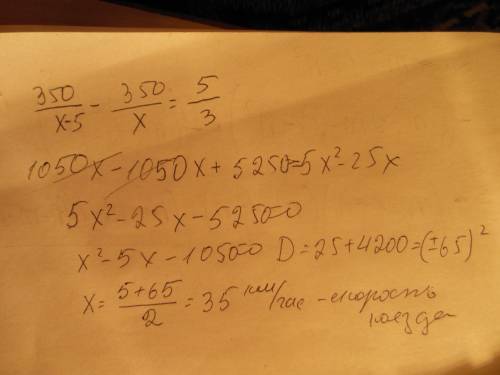 350/(x-5) - 350/x = 5/3
1050x - 1050x + 5250 = 5x² - 25x
5x² - 25x - 5250=0
x² - 5x - 1050=0 D = 25 + 4200 = (±65)²
x = (5+65)/2 = 35 км/час - скорость
поезда